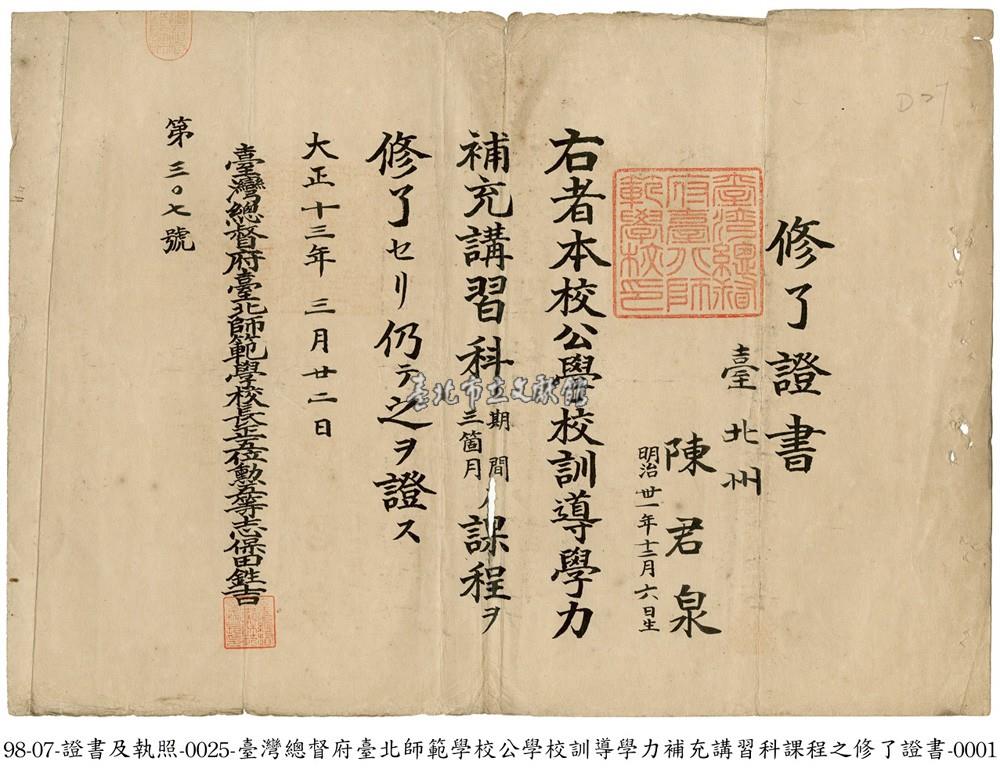 修了證書
臺北州
陳君泉
明治卅一年十二月六日生
臺灣總督府臺北師範學校印
右者本校公學校訓導學力
補充講習科期間三箇月ノ課程ヲ
修了セリ仍テ之ヲ證ス
大正十三年三月廿二日
臺灣總督府臺北師範學校長正五位勳五等志保田鉎吉
第三〇七號
臺北市立文獻館
98-07-證書及執照-0025-臺灣總督府臺北師範學校公學校訓導學力補充講習科課程之修了證書-0001